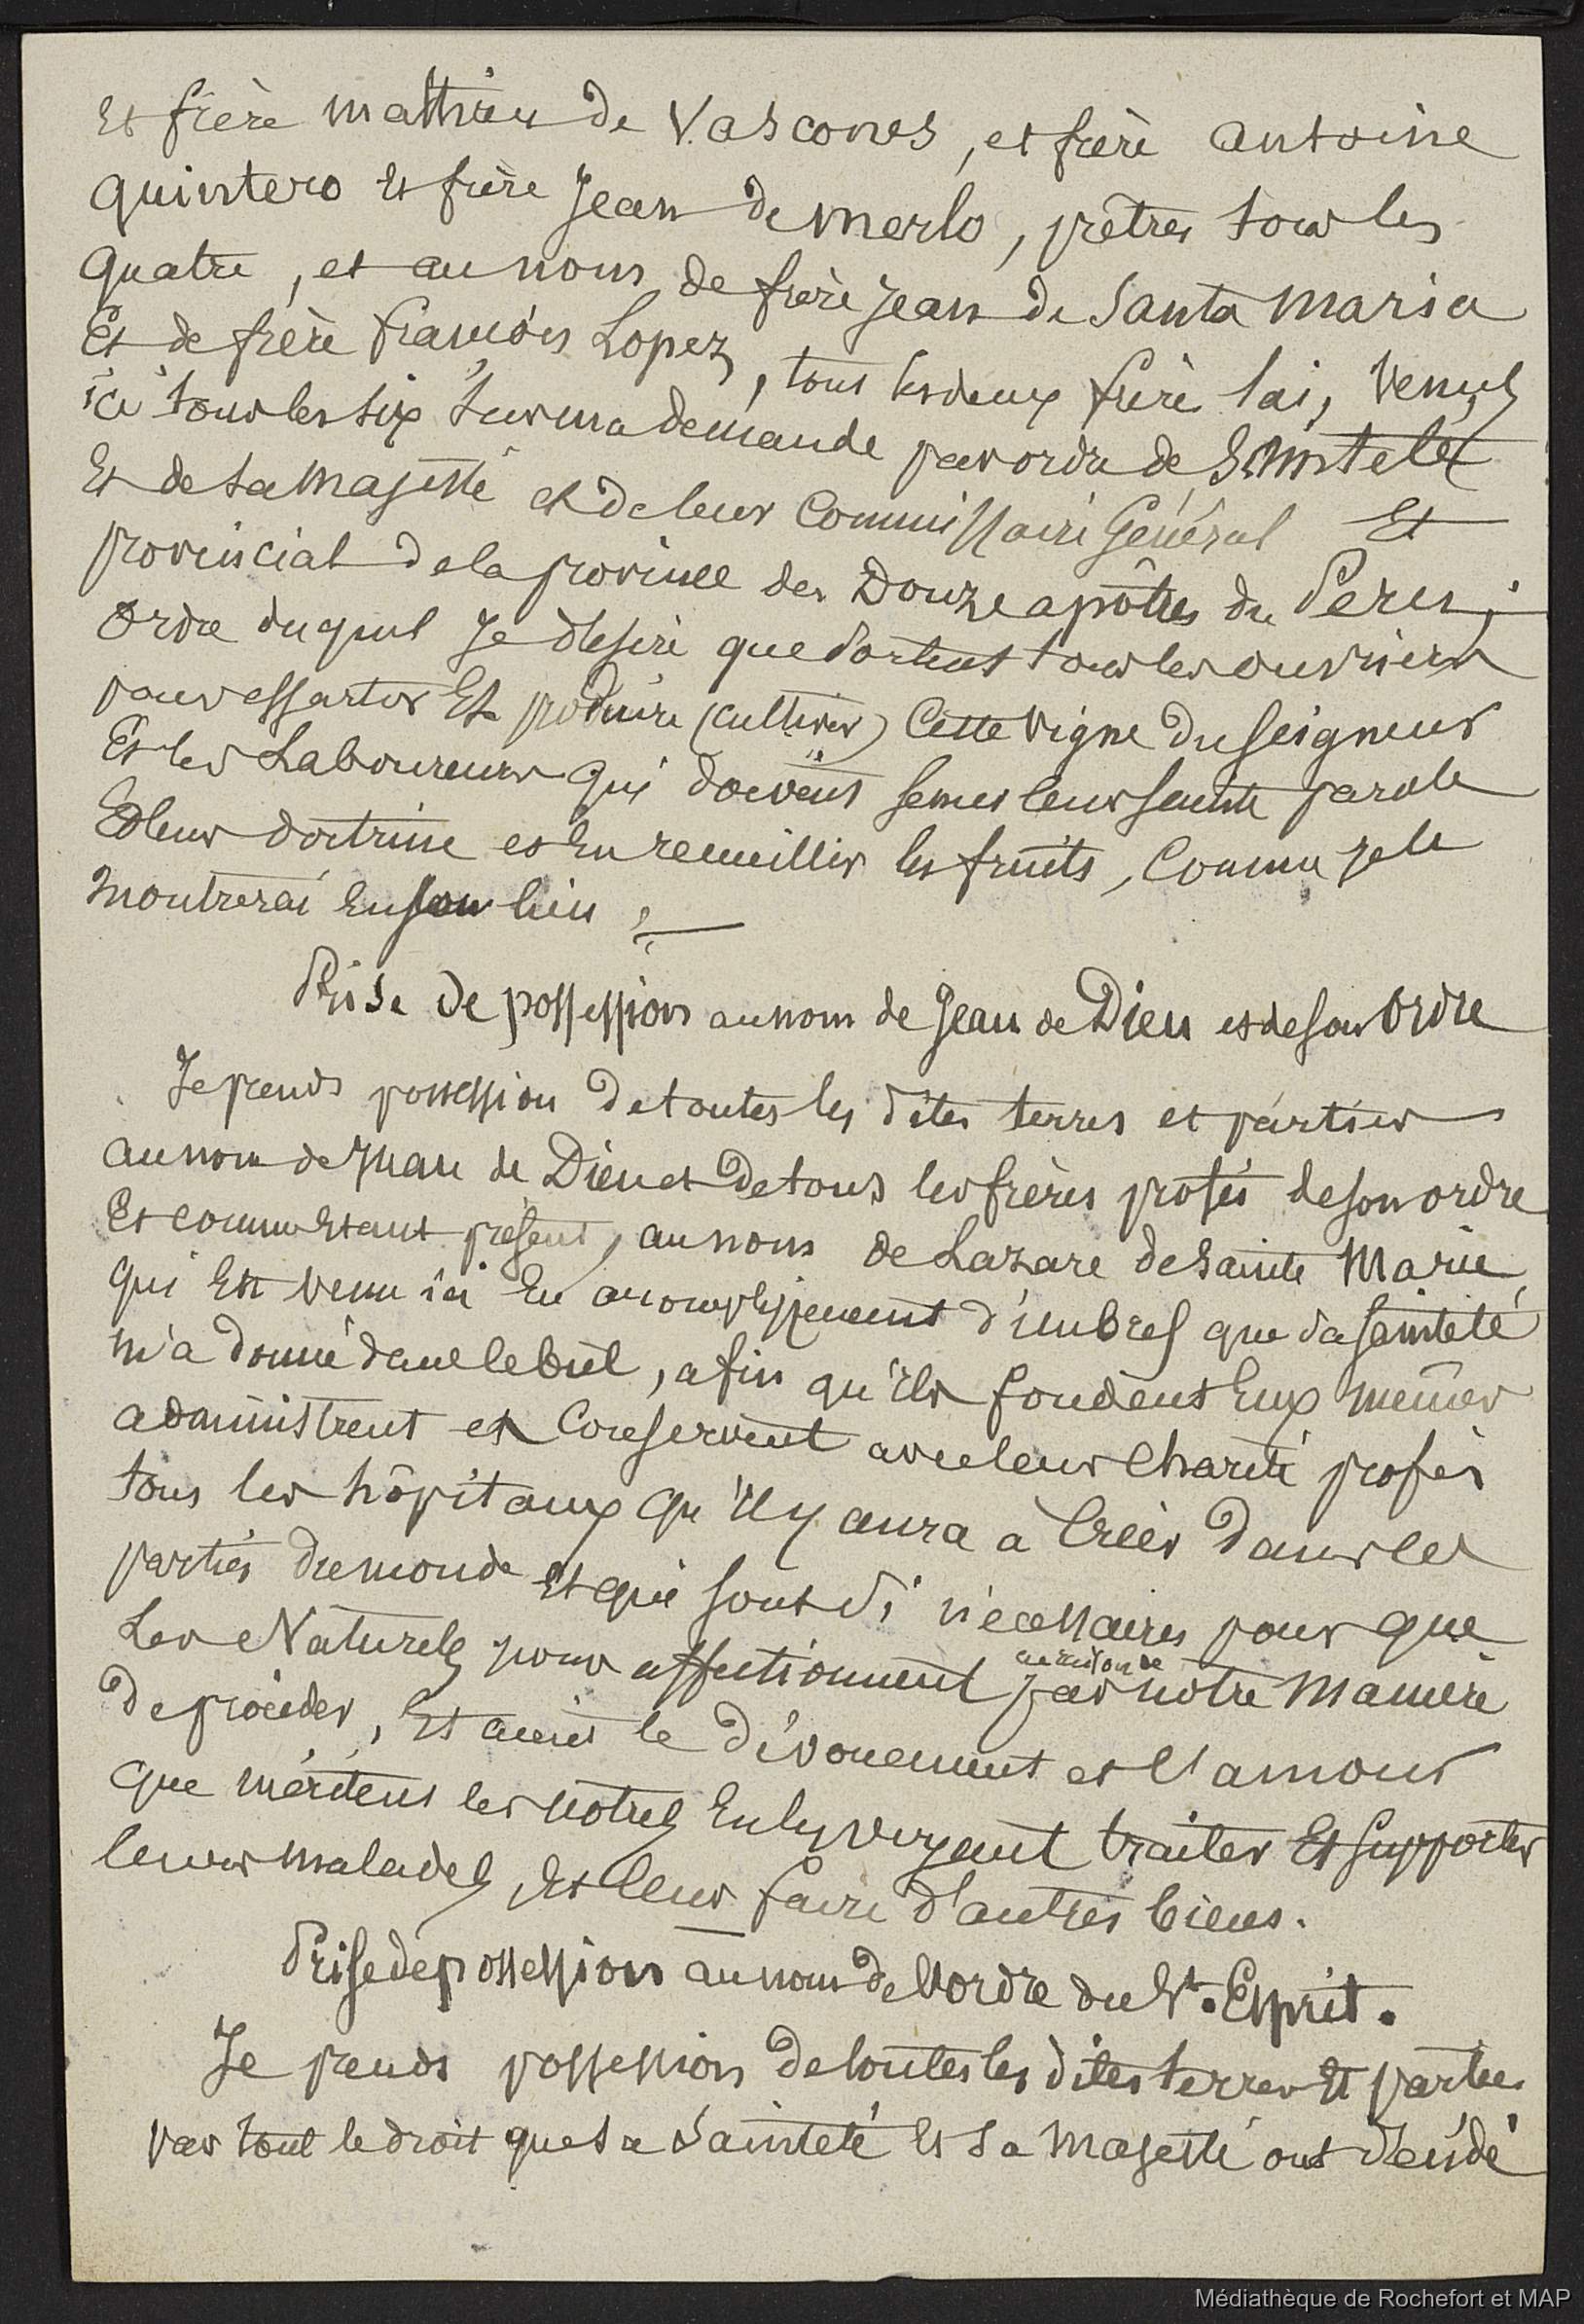 Et frère Matthieu de Vascones, et frère Antoine
Quintero Et frère Jean de Merlo, prêtres tous les
quatre, et au nom de frère Jean de Santa Maria
Et de frère François Lopez, tous les deux frère lai, venus
ici tous les six sur ma demande par ordre de S. Sainteté
Et de sa Majesté et de leur Commissaire Général Et
provincial de la province des Douze apôtres du Pérou;
Ordre duquel Je desire que sortent tous les ouvriers
pour essarter Et produire (cultiver) Cette vigne du Seigneur
Et les Laboureurs qui doivent semer leur sainte parole
Et leur doctrine et en recueillir les fruits, Comme je le
montrerai en son lieu.
Prise de possession au nom de Jean de Dieu et de son Ordre
Je prends possession de toutes les dites terres et parties
au nom de Juan de Dieu et de tous les frères profès de son ordre
Et comme étant présent, au nom de Lazare de Sainte Marie,
qui Est venu ici En accomplissement d'un bref que sa Sainteté
m'a donné dans le but, afin qu'ils fondent Eux mêmes
administrent et Conservent avec leur Charité profès
tous les hôpitaux qu'il y aura à Créer dans les
parties du monde Et qui sont si nécessaires pour que
Les Naturels nous affectionnent par notre Manière
de procéder, Et aient le dévouement et l'amour
que méritent les nôtres En les voyant traiter Et supporter
leurs malades, Et leur faire d'autres biens.
Prise de possession au nom de l'ordre du St. Esprit.
Je prends possession de toutes les dites terres Et parties
par tout le droit que sa Sainteté Et Sa Majesté ont décidé
Médiathèque de Rochefort et MAP